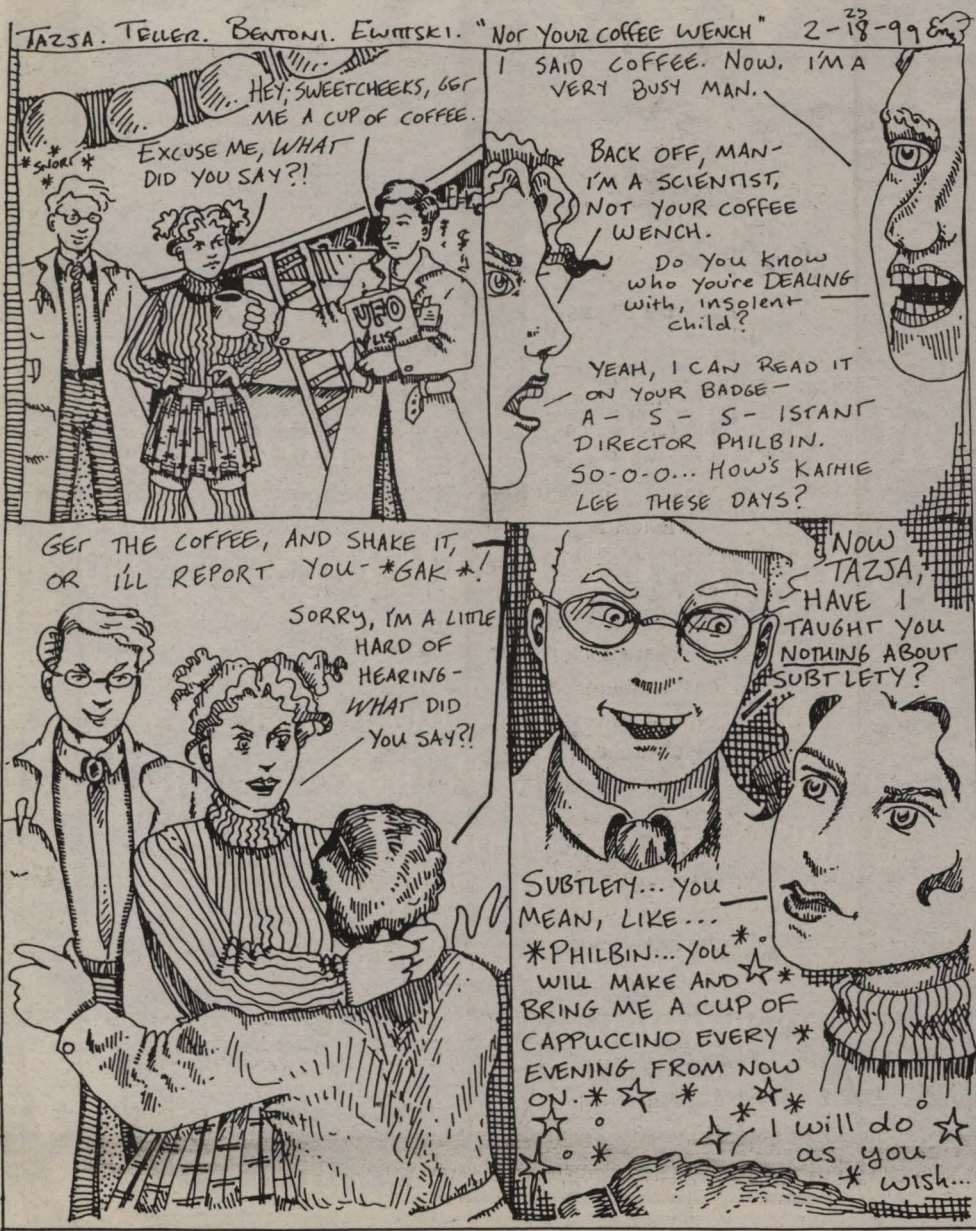 TAZJA. TELLER. BENTONI. EWITSKI. "NOT YOUR COFFEE WENCH" 2-18-99
23
HEY, SWEETCHEEKS, GET
ME A CUP OF COFFEE.
*SNORT*
EXCUSE ME, WHAT
DID YOU SAY?!
UFO
LIST
I SAID COFFEE. NOW. I'M A
VERY BUSY MAN.
BACK OFF, MAN-
I'M A SCIENTIST,
NOT YOUR COFFEE
WENCH.
Do You Know
who you're DEALING
with, insolent
child?
YEAH, I CAN READ IT
ON YOUR BADGE-
A - S - S - ISTANT
DIRECTOR PHILBIN.
SO-O-O... HOW'S KATHIE
LEE THESE DAYS?
GET THE COFFEE, AND SHAKE IT,
OR I'LL REPORT YOU- *GAK*!
SORRY, I'M A LITTLE
HARD OF
HEARING-
WHAT DID
YOU SAY?!
NOW
TAZJA,
HAVE I
TAUGHT YOU
NOTHING ABOUT
SUBTLETY?
SUBTLETY... YOU
MEAN, LIKE...
*PHILBIN... YOU*
WILL MAKE AND
BRING ME A CUP OF
CAPPUCCINO EVERY *
EVENING FROM NOW
ON. *
I will do
as you
* wish...